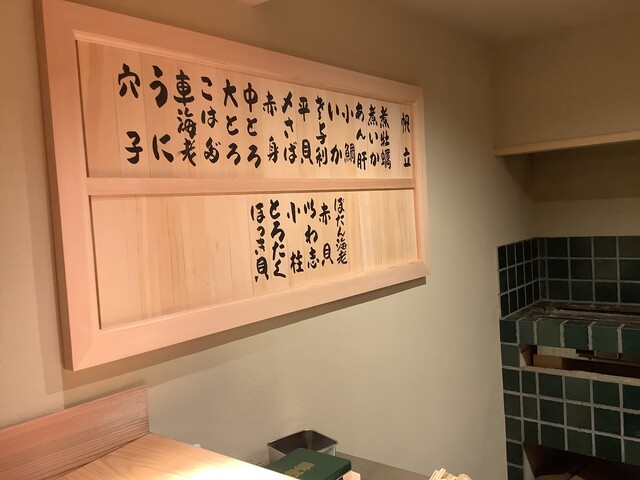 帆立
煮牡蠣
煮いか
あん肝
小鯛
いか
き与利
平貝
〆さば
赤身
中とろ
大とろ
こはだ
車海老
うに
穴子
ぼたん海老
赤貝
いわ志
小柱
とろたく
ほっき貝